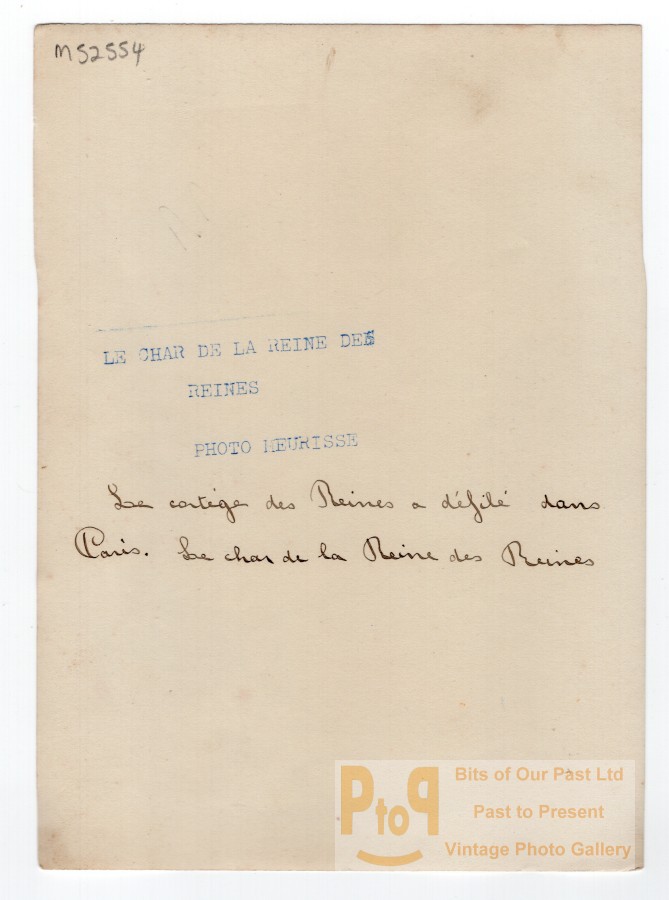 M52554
LE CHAR DE LA REINE DES
REINES
PHOTO MEURISSE
Le cortége des Reines a défilé dans
Paris. Le char de la Reine des Reines
PtoP
Bits of Our Past Ltd
Past to Present
Vintage Photo Gallery